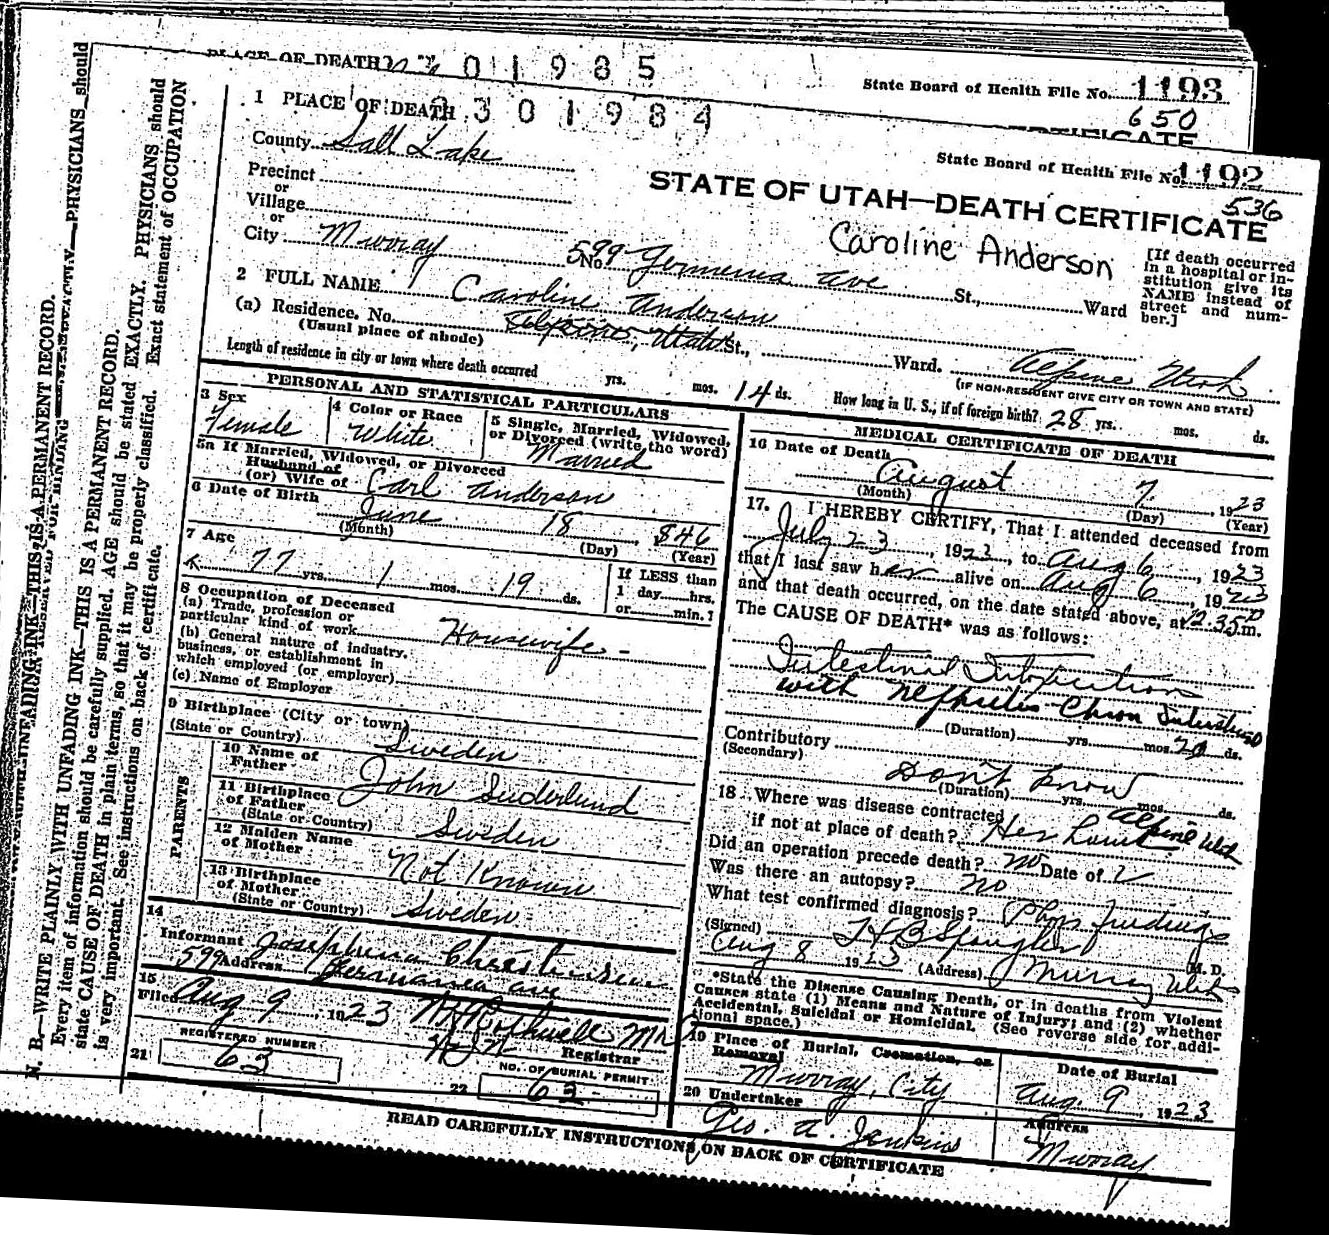 PLACE OF DEATH
01985
State Board of Health File No. 1193
650
CERTIFICATE
1 PLACE OF DEATH
2301984
County Salt Lake
State Board of Health File No. 1192
536
Precinct
or
Village
or
City Murray
STATE OF UTAH—DEATH CERTIFICATE
Caroline Anderson
No. 599 Germania Ave St., Ward
[If death occurred in a hospital or institution give its NAME instead of street and number.]
2 FULL NAME Caroline Anderson
(a) Residence. No. Alpine, Utah St., Ward. Alpine Utah
(Usual place of abode)
(IF NON-RESIDENT GIVE CITY OR TOWN AND STATE)
Length of residence in city or town where death occurred yrs. mos. 14 ds.
How long in U. S., if of foreign birth? 28 yrs. mos. ds.
PERSONAL AND STATISTICAL PARTICULARS
3 Sex
Female
4 Color or Race
White
5 Single, Married, Widowed, or Divorced (write the word)
Married
5a If Married, Widowed, or Divorced
Husband of
(or) Wife of Carl Anderson
6 Date of Birth
June 18, 1846
(Month) (Day) (Year)
7 Age
77 yrs. 1 mos. 19 ds.
If LESS than
1 day hrs.
or min.?
8 Occupation of Deceased
(a) Trade, profession or
particular kind of work Housewife -
(b) General nature of industry,
business, or establishment in
which employed (or employer)
(c) Name of Employer
9 Birthplace (City or town)
(State or Country) Sweden
PARENTS
10 Name of
Father John Suderlund
11 Birthplace
of Father
(State or Country) Sweden
12 Maiden Name
of Mother Not Known
13 Birthplace
of Mother
(State or Country) Sweden
14
Informant Josephena Christensen
Address 599 Germania ave
15
Filed Aug-9 1923
Registrar
REGISTERED NUMBER
21 63
NO. OF BURIAL PERMIT
22 63
MEDICAL CERTIFICATE OF DEATH
16 Date of Death
August 7 1923
(Month) (Day) (Year)
17. I HEREBY CERTIFY, That I attended deceased from
July 23, 1923, to Aug 6, 1923
that I last saw her alive on Aug 6, 1923
and that death occurred, on the date stated above, at 12.35 P m.
The CAUSE OF DEATH* was as follows:
Intestinal Intoxication
with Nephritis Chron Interstitial
(Duration) yrs. mos. 20 ds.
Contributory
(Secondary)
Don't know
(Duration) yrs. mos. ds.
18 Where was disease contracted
if not at place of death? Her home Alpine Utah
Did an operation precede death? no Date of
Was there an autopsy? no
What test confirmed diagnosis? Phys findings
(Signed) H B Spangler M. D.
Aug 8 1923 (Address) Murray Utah
*State the Disease Causing Death, or in deaths from Violent
Causes state (1) Means and Nature of Injury; and (2) whether
Accidental, Suicidal or Homicidal. (See reverse side for addi-
tional space.)
19 Place of Burial, Cremation, or
Removal
Murray City
Date of Burial
Aug. 9, 1923
20 Undertaker
Geo. A. Jenkins
Address
Murray
READ CAREFULLY INSTRUCTIONS ON BACK OF CERTIFICATE
N. B.—WRITE PLAINLY WITH UNFADING INK—THIS IS A PERMANENT RECORD.
Every item of information should be carefully supplied. AGE should be stated EXACTLY. PHYSICIANS should
state CAUSE OF DEATH in plain terms, so that it may be properly classified. Exact statement of OCCUPATION
is very important. See instructions on back of certificate.